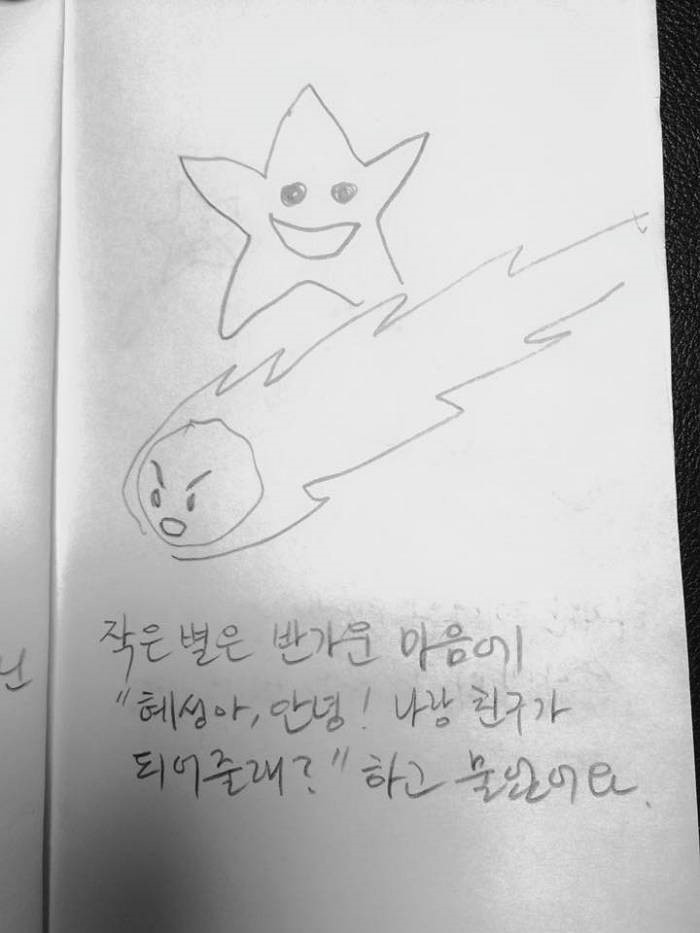 작은 별은 반가운 마음에
"혜성아, 안녕! 나랑 친구가
되어줄래?" 하고 물었어요.